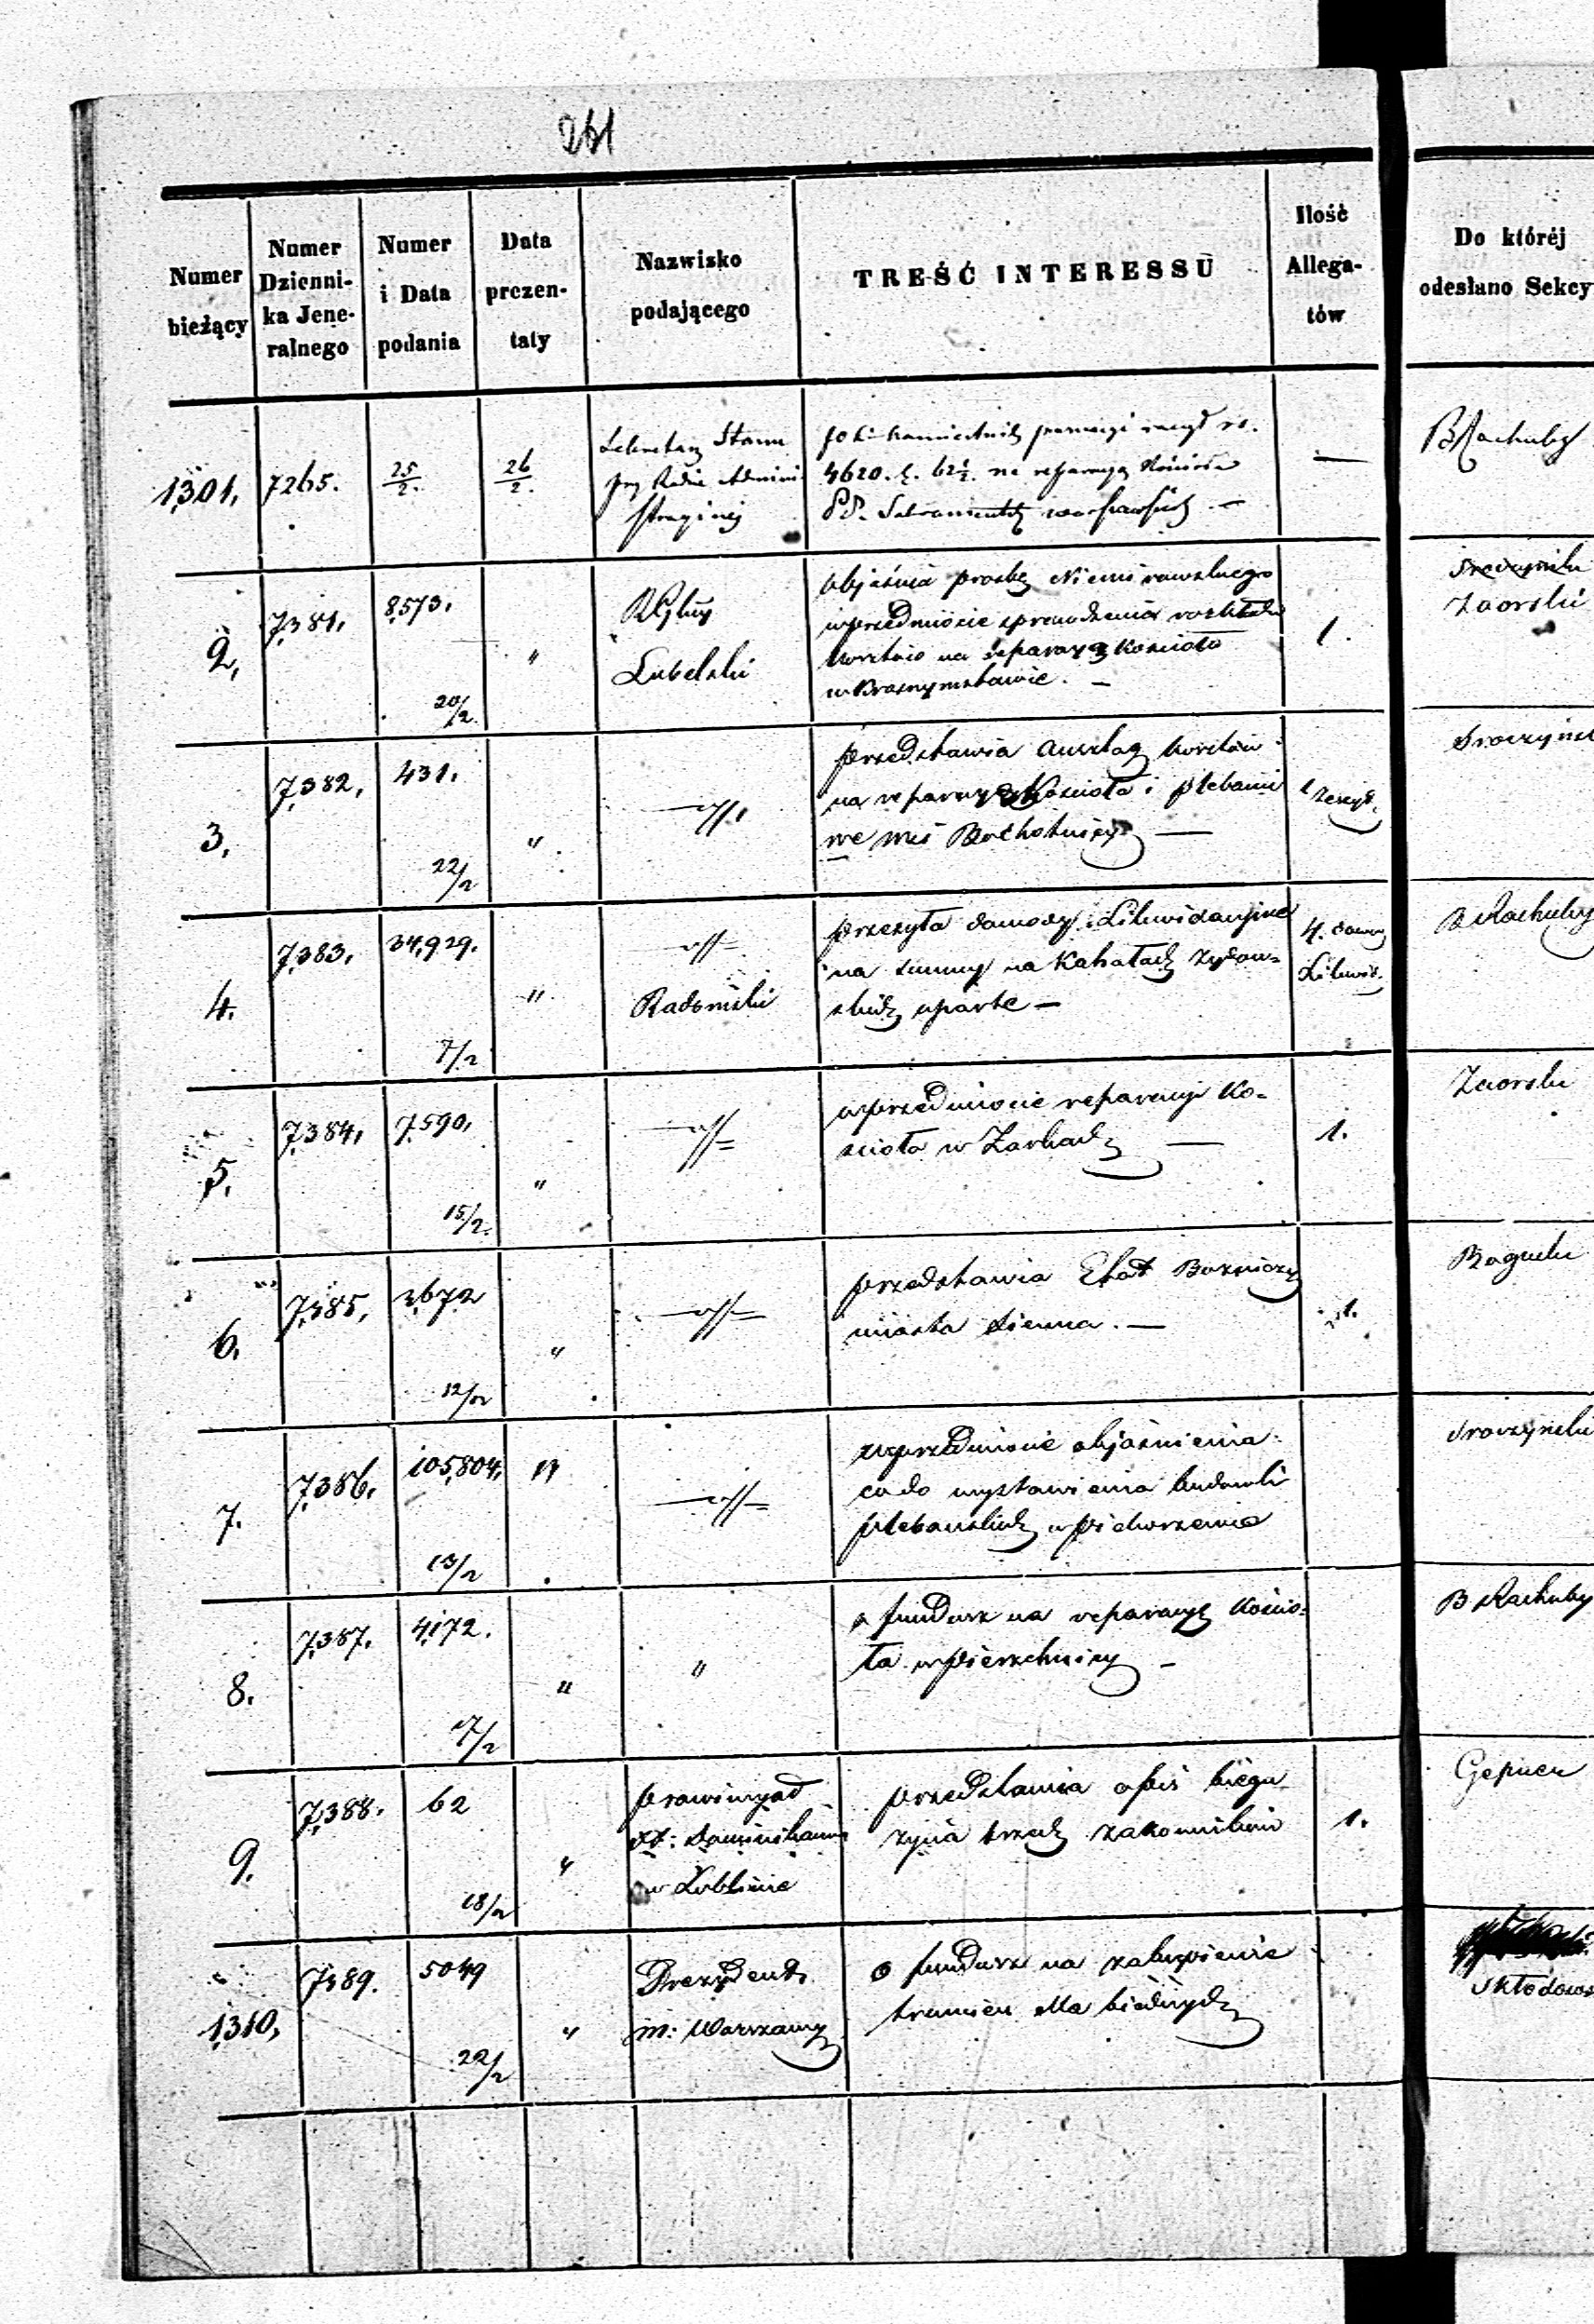 261
Numer bieżący
Numer Dzienni-ka Jene-ralnego
Numer i Data podania
Data prezen-taty
Nazwisko podającego
TREŚĆ INTERESSU
Ilość Allega-tów
Do któréj odesłano Sekcy
1301. 7265. 25/2. 26/2.
Sekretarz Stanu
przy Radzie Admini
stracyjnej
4620. k. 62½. na reparacyą Kościoła
PP. Sakramentek warszawskich —
—
B Rachuby
2. 7381. 8573. 20/2 "
R Gbny
Lubelski
objaśnia prośbę Niemirowskiego
wprzedmiocie sprawdzenia rozkładu
kosztów na reparacyą Kościoła
w Krasnymstawie. —
1.
Sroczyński
Zaorski
3. 7382. 431. 22/2 "
przedstawia anszlag kosztów
na reparacyą Kościoła i plebanii
we wsi Bochotnicy —
1 zeszyt.
Sroczyńs
4. 7383. 34,929. 7/2 "
Radomski
przesyła dowody Likwidacyjne
na summy na Kahałach Żydow-
skich oparte —
4. dowody
Likwid.
B Rachuby
5. 7384. 7590. 15/2. "
wprzedmiocie reparacyi Ko-
ścioła w Żarkach —
1.
Zaorski
6. 7385. 3672 12/2 "
przedstawia Etat Bożniczy
miasta Sienna. —
1.
Baguski
7. 7386. 105,804. 13/2 "
wprzedmiocie objaśnienia
co do wystawienia budowli
plebańskich w
Sroczyński
8. 7387. 4172. 17/2 " "
o fundusz na reparacyę Kościo-
ła w Pierzchnicy —
B Rachuby
9. 7388. 62 18/2 "
XX: Dominikanów
w Lublinie
przedstawia opis biegu
życia trzech zakonników
1.
Gepner
1310. 7389. 5049 22/2 "
Prezydent
m: Warszawy
o fundusz na zakupienie
trumien dla biednych
Skłodows